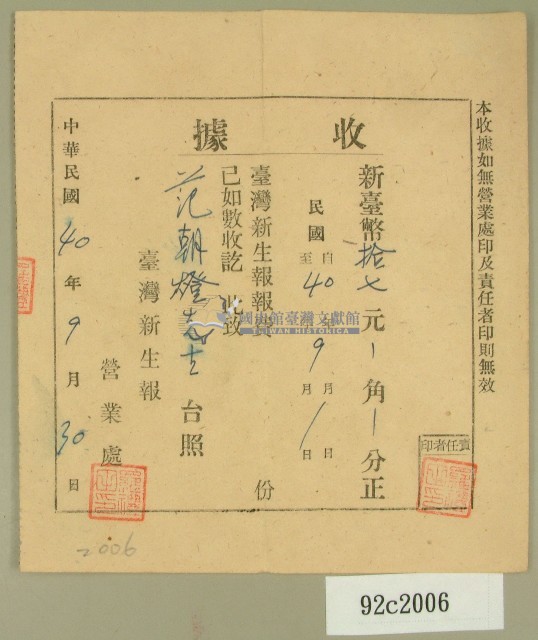 本收據如無營業處印及責任者印則無效
收據
新臺幣拾七元／角／分正
民國
自40年9月1日
至 年 月 日
臺灣新生報報費 份
已如數收訖 此致
范朝燈志士 台照
臺灣新生報
營業處
中華民國40年9月30日
責任者印
國史館臺灣文獻館
TAIWAN HISTORICA
2006
92c2006